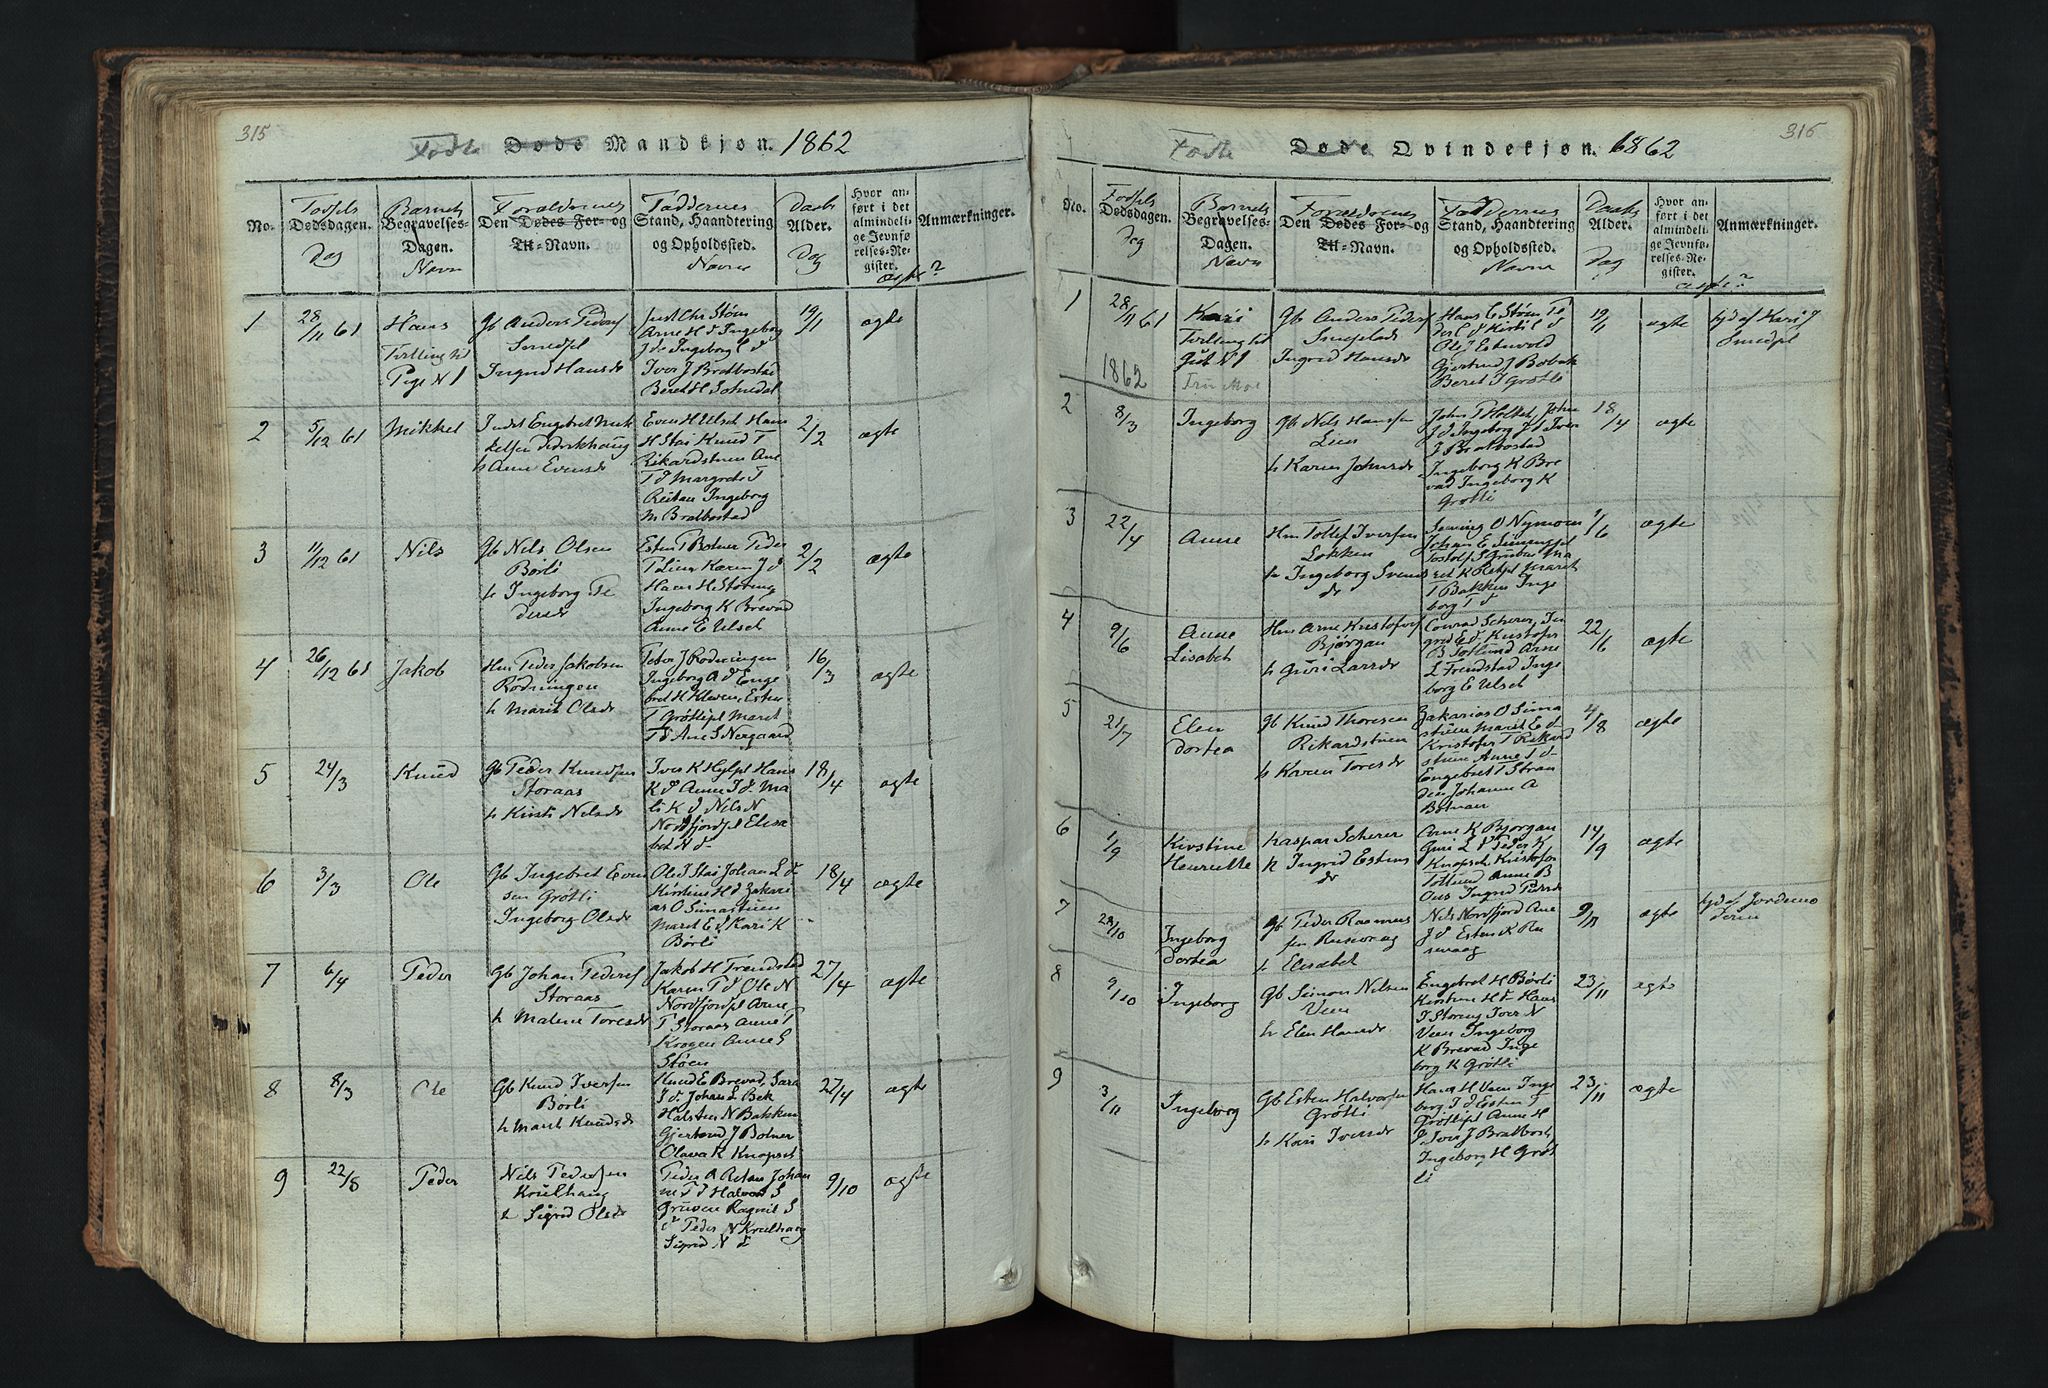 315
Fødte Døde Mandkjøn. 1862
No.
Fødsels
Dødsdagen.
Dag
Barnets
Begravelses-
Dagen.
Navn
Forældrenes
Den Dødes For- og
Til-Navn.
Faddernes
Stand, Haandtering
og Opholdssted.
Navne
Daabs
Alder.
Dag
Hvor an-
ført i det
almindeli-
ge Jevnfø-
relses-Re-
gister.
ægte?
Anmærkninger.
1
28/11 61
Hans
Tvilling til
Pige N 1
Gb Anders Peders
Ingrid Hansdr
Just Chr Støen
Arne H d Ingeborg
J d Ingeborg L d
Iver J Bratbostad
Beret H
19/1
ægte
2
5/12 61
Mikkel
Indst Engebret Mik
kelsen
h Anne Evensdr
Even H Ulset Hans
H Stai Knud T
Rikardstuen Ane
T d Margrete T
Reitan Ingeborg
M Bratbostad
2/2
ægte
3
11/12 61
Nils
Gb Nils Olsen
Børli
h Ingeborg Pe
dersdr
Esten T Botner Peder
T Lien Karen J d
Hans H Storeng
Ingeborg K Brevad
Anne E Ulset
2/2
ægte
4
26/12 61
Jakob
Hm Peder Jakobsen
Rødningen
h Marit Olsdr
Peter J Rødningen
Ingeborg A d Enge
bret H Kleven, Esten
T Grøtlipl Marit
T d Ane S Nergaard
16/3
ægte
5
24/3
Knud
Gb Peder Knudsen
Storaas
h Kirsti Nilsdr
Iver K Hylpl Hans
K d Anne I d Ma
li K d Nils N
Nordfjordpl Elisa
bet N d
18/4
ægte
6
3/3
Ole
Gb Ingebret Even
sen Grøtli
Ingeborg Olsdr
Ole J Stai Johan L d
Kirstine H d Zakari
as O Simastuen
Marit E d Kari K
Børli
18/4
ægte
7
6/4
Peder
Gb Johan Peders
Storaas
h Malene Toresdr
Jakob H Trøndstad
Karen T d Ole N
Nordfjordpl Arne
T Storaas Anne T
Krogen Anne S
Støen
27/4
ægte
8
8/3
Ole
Gb Knud Iversen
Børli
h Marit Knudsdr
Knud E Brevad, Sara
J d Johan L Bek
Halsten N Bakken
Gjertrud J Botner
Olava K Knapset
27/4
ægte
9
22/8
Peder
Nils Pedersen
Kruelhaug
h Sigrid Olsdr
Peder A Retan Johan
ne T d Halvor S
Gruven Ragnil S
d Peder N Kruelhaug
Sigrid N d
9/10
ægte
316
Fødte Døde Qvindekjøn. 1862
No.
Fødsels
Dødsdagen.
Dag
Barnets
Begravelses-
Dagen.
Navn
Forældrenes
Den Dødes For- og
Til-Navn.
Faddernes
Stand, Haandtering
og Opholdssted.
Navne
Daabs
Alder.
Dag
Hvor an-
ført i det
almindeli-
ge Jevnfø-
relses-Re-
gister.
ægte?
Anmærkninger.
1
28/11 61
Kari
Tvilling til
Gut N 1
Gb Anders Peders
Ingrid Hansdr
Hans E Støen Pe
der L d Kirsti L d
Ole J Estuvold
Gjertrud J Borbak
Beret I Grøtli
19/1
ægte
1862
2
8/3
Ingeborg
Gb Nils Hansen
Lien
h Karen Johnsdr
John P Holtet, John
J d Ingeborg J d Iver
J Bratbostad
Ingeborg K Bre
vad Ingeborg K
Grøtli
18/4
ægte
3
22/4
Anne
Hm Tollef Iversen
Løkken
h Ingeborg Svens
dr
T Bakken Inge
borg T d
1/6
ægte
4
9/6
Anne
Lisabet
Hm Arne Kristofers
Bjørgan
h Guri Larsdr
Conrad Scherer, In
grid E d. Kristofer
B Totlund Arne
L Trøndstad Inge
borg E Ulset
22/6
ægte
5
21/7
Elen
Dortea
Gb Knud Thoresen
Rikardstuen
h Karen Toresdr
Zakarias O Sima
stuen Marit E d
Kristofer T Rikard
stuen Anne T d
Engebret T Stran
den Johanne A
Botnan
4/8
ægte
6
1/9
Kirstine
Henriette
Kaspar Scherer
h Ingrid Estens
dr
Arne K Bjørgan
Guri L d Peder K
Knapset, Kristofer
Totlund Anne B
Ous Ingrid Pedrsdr
14/9
ægte
7
28/10
Ingeborg
Dortea
Gb Peder Rasmus
sen Rusvaag
h Elisabet
Nils Nordfjord Ane
J d Esten K Ru
svaag
9/11
ægte
hjd af Jordemo
deren
8
9/10
Ingeborg
Gb Simon Nilsen
Veen
h Elen Hansdr
Engebret H Børli
Kirstine H d Hans
J Storeng Iver N
Veen Ingeborg
K Brevad Inge
borg K Grøtli
23/11
ægte
9
3/11
Ingeborg
Gb Esten Halvorsen
Grøtli
h Kari Iversdr
Hans H Veen Inge
borg I d Esten T
Grøtlipl Anne H
d Iver J Bratbost
Ingeborg H Grøt
li
23/11
ægte